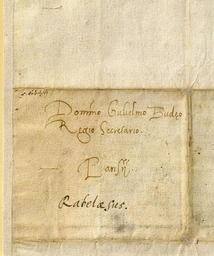 Domino Gulielmo Budęo
Regio Secretario.
Rabelæsus.